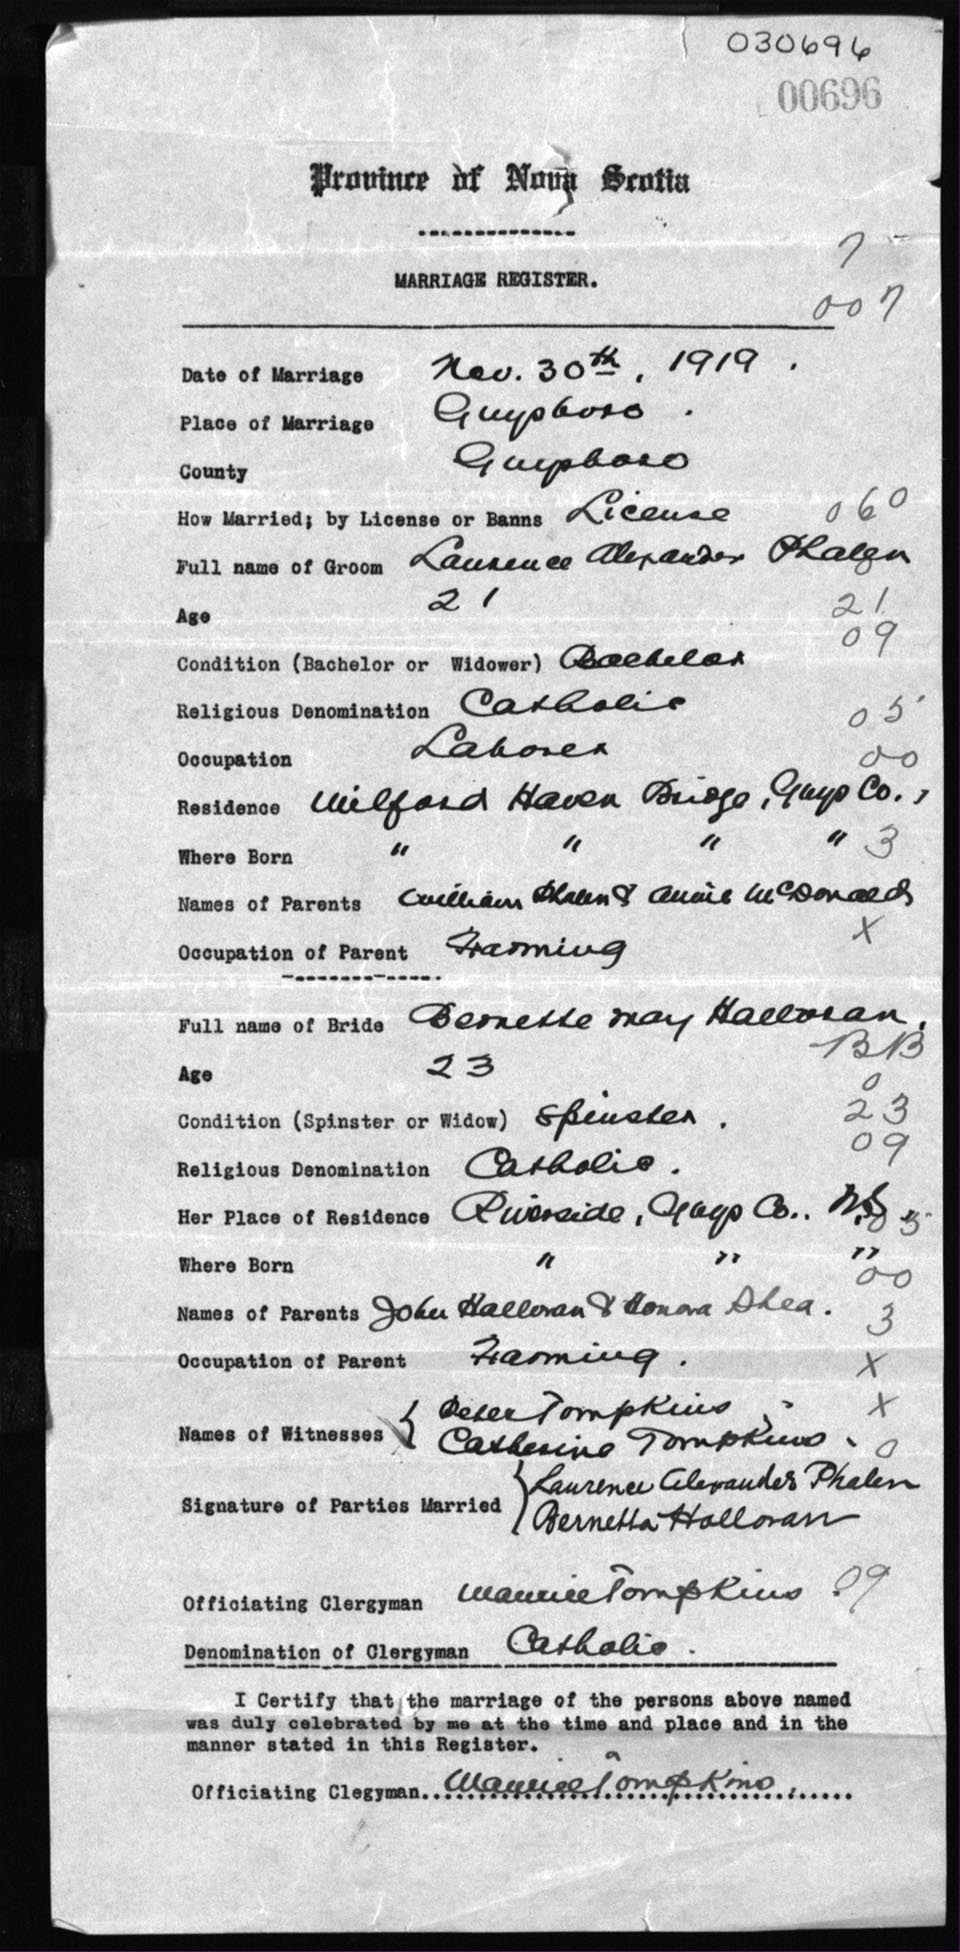 030696
00696
Province of Nova Scotia
7
MARRIAGE REGISTER.
007
Date of Marriage Nov. 30th, 1919.
Place of Marriage Guysboro.
County Guysboro
How Married; by License or Banns License 060
Full name of Groom Laurence Alexander Phalen
Age 21 21
09
Condition (Bachelor or Widower) Bachelor
Religious Denomination Catholic 05
Occupation Laborer 00
Residence Milford Haven Bridge, Guys Co.,
Where Born " " " " 3
Names of Parents William Phalen & Annie McDonald
X
Occupation of Parent Farming
Full name of Bride Bernette May Halloran,
BB
Age 23 0
Condition (Spinster or Widow) Spinster. 23
09
Religious Denomination Catholic.
Her Place of Residence Riverside, Guys Co.. N.S. 05
Where Born " " "
00
Names of Parents John Halloran & Honora Shea. 3
Occupation of Parent Farming. X
Names of Witnesses { Peter Tompkins X
Catherine Tompkins 0
Signature of Parties Married { Laurence Alexander Phalen
Bernetta Halloran
Officiating Clergyman Maurice Tompkins. 09
Denomination of Clergyman Catholic.
I Certify that the marriage of the persons above named
was duly celebrated by me at the time and place and in the
manner stated in this Register.
Officiating Clegyman..Maurice Tompkins.